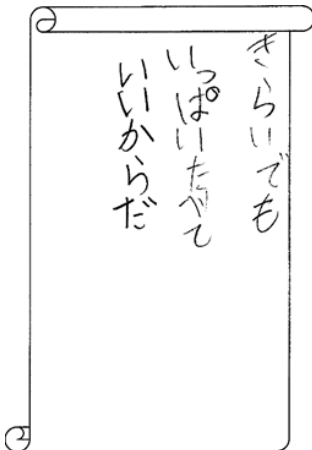 きらいでも
いっぱいたべて
いいからだ